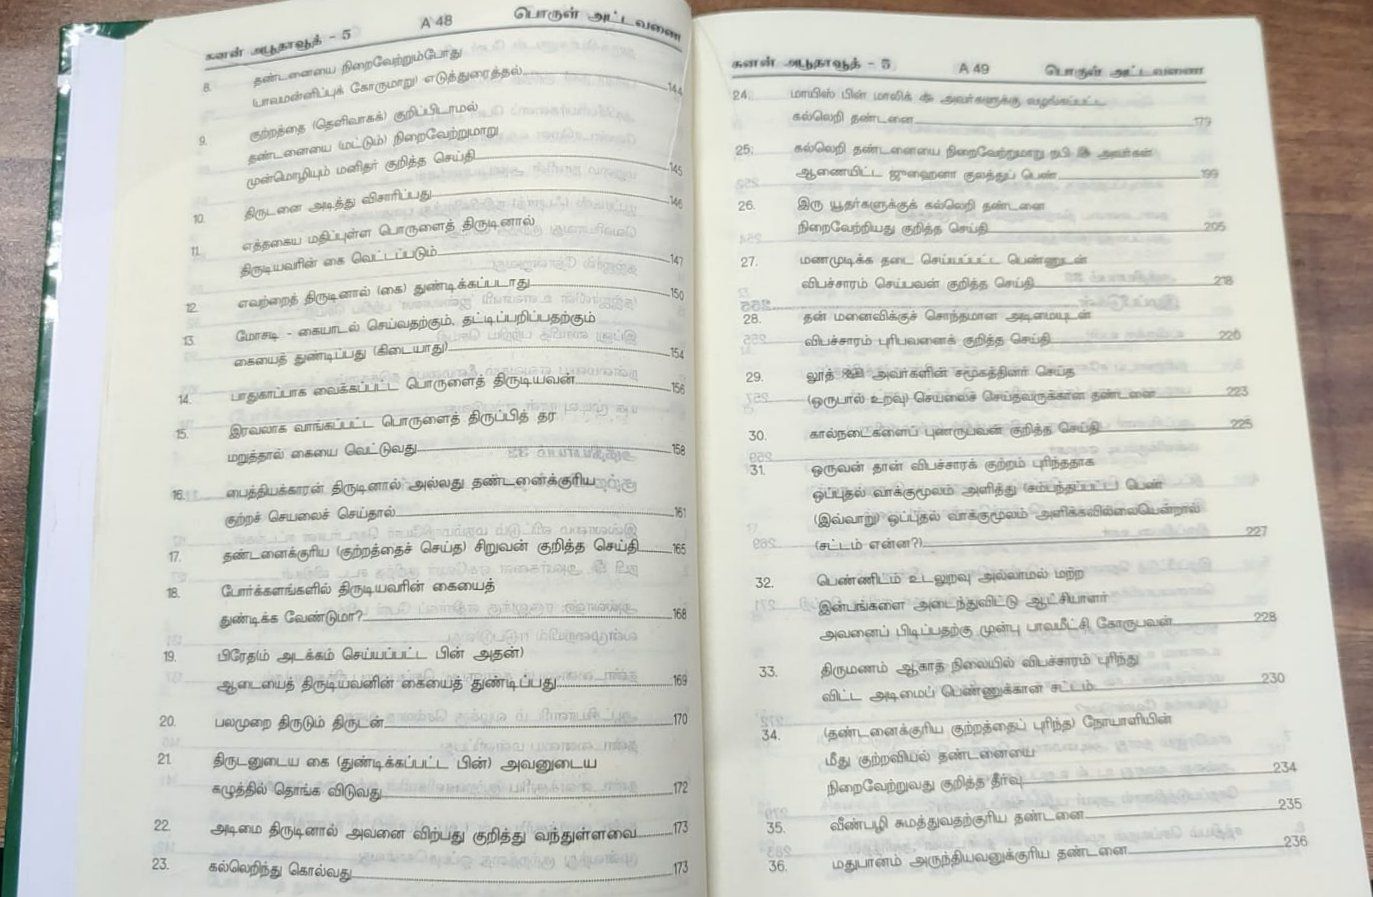 சுனன் அபூதாவூத் - 5 A 48 பொருள் அட்டவணை
8. தண்டனையை நிறைவேற்றும்போது
பாவமன்னிப்புக் கோருமாறு) எடுத்துரைத்தல் 144
9. குற்றத்தை (தெளிவாகக்) குறிப்பிடாமல்
தண்டனையை (மட்டும்) நிறைவேற்றுமாறு
முன்மொழியும் மனிதர் குறித்த செய்தி 145
10. திருடனை அடித்து விசாரிப்பது 146
11. எத்தகைய மதிப்புள்ள பொருளைத் திருடினால்
திருடியவரின் கை வெட்டப்படும் 147
12. எவற்றைத் திருடினால் (கை) துண்டிக்கப்படாது 150
13. மோசடி - கையாடல் செய்வதற்கும், தட்டிப்பறிப்பதற்கும்
கையைத் துண்டிப்பது (கிடையாது) 154
14. பாதுகாப்பாக வைக்கப்பட்ட பொருளைத் திருடியவன் 156
15. இரவலாக வாங்கப்பட்ட பொருளைத் திருப்பித் தர
மறுத்தால் கையை வெட்டுவது 158
16. பைத்தியக்காரன் திருடினால் அல்லது தண்டனைக்குரிய
குற்றச் செயலைச் செய்தால் 161
17. தண்டனைக்குரிய (குற்றத்தைச் செய்த) சிறுவன் குறித்த செய்தி 165
18. போர்க்களங்களில் திருடியவரின் கையைத்
துண்டிக்க வேண்டுமா? 168
19. பிரேத(ம் அடக்கம் செய்யப்பட்ட பின் அதன்)
ஆடையைத் திருடியவனின் கையைத் துண்டிப்பது 169
20. பலமுறை திருடும் திருடன் 170
21. திருடனுடைய கை (துண்டிக்கப்பட்ட பின்) அவனுடைய
கழுத்தில் தொங்க விடுவது 172
22. அடிமை திருடினால் அவனை விற்பது குறித்து வந்துள்ளவை 173
23. கல்லெறிந்து கொல்வது 173
சுனன் அபூதாவூத் - 5 A 49 பொருள் அட்டவணை
24. மாயிஸ் பின் மாலிக் அவர்களுக்கு வழங்கப்பட்ட
கல்லெறி தண்டனை 179
25. கல்லெறி தண்டனையை நிறைவேற்றுமாறு நபி ﷺ அவர்கள்
ஆணையிட்ட ஜுஹைனா குலத்துப் பெண் 199
26. இரு யூதர்களுக்குக் கல்லெறி தண்டனை
நிறைவேற்றியது குறித்த செய்தி 205
27. மணமுடிக்க தடை செய்யப்பட்ட பெண்ணுடன்
விபச்சாரம் செய்பவன் குறித்த செய்தி 218
28. தன் மனைவிக்குச் சொந்தமான அடிமையுடன்
விபச்சாரம் புரிபவனைக் குறித்த செய்தி 220
29. லூத் அவர்களின் சமூகத்தினர் செய்த
(ஒருபால் உறவு) செயலைச் செய்தவருக்கான தண்டனை 223
30. கால்நடைகளைப் புணருபவன் குறித்த செய்தி 225
31. ஒருவன் தான் விபச்சாரக் குற்றம் புரிந்ததாக
ஒப்புதல் வாக்குமூலம் அளித்து (சம்பந்தப்பட்ட) பெண்
(இவ்வாறு) ஒப்புதல் வாக்குமூலம் அளிக்கவில்லையென்றால்
(சட்டம் என்ன?) 227
32. பெண்ணிடம் உடலுறவு அல்லாமல் மற்ற
இன்பங்களை அடைந்துவிட்டு ஆட்சியாளர்
அவனைப் பிடிப்பதற்கு முன்பு பாவமீட்சி கோருபவன் 228
33. திருமணம் ஆகாத நிலையில் விபச்சாரம் புரிந்து
விட்ட அடிமைப் பெண்ணுக்கான சட்டம் 230
34. (தண்டனைக்குரிய குற்றத்தைப் புரிந்த) நோயாளியின்
மீது குற்றவியல் தண்டனையை
நிறைவேற்றுவது குறித்த தீர்வு 234
35. வீண்பழி சுமத்துவதற்குரிய தண்டனை 235
36. மதுபானம் அருந்தியவனுக்குரிய தண்டனை 236